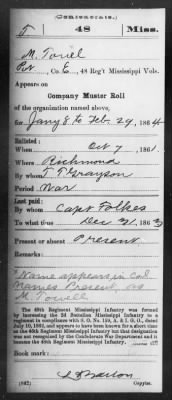 (Confederate.)
T 48 Miss.
M. Towel
Pvt, Co. E, 48 Reg't Mississippi Vols.
Appears on
Company Muster Roll
of the organization named above,
for Jany & to Feb. 29, 1864
Enlisted:
When Oct 7, 1861
Where Richmond
By whom T. P. Grayson
Period War
Last paid:
By whom Capt Folkes
To what time Dec 31, 1863
Present or absent Present
Remarks:
"Name appears in Col.
Names Present, as
M. Towell
The 48th Regiment Mississippi Infantry was formed
by increasing the 2d Battalion Mississippi Infantry to a
regiment in compliance with S. O. No.
and appears to have been known for a short time
as the 45th Regiment Mississippi Infantry but this designation
was not recognized by the Confederate War Department and it
became the 48th Regiment Mississippi Infantry.
Book mark:
(642) Copyist.